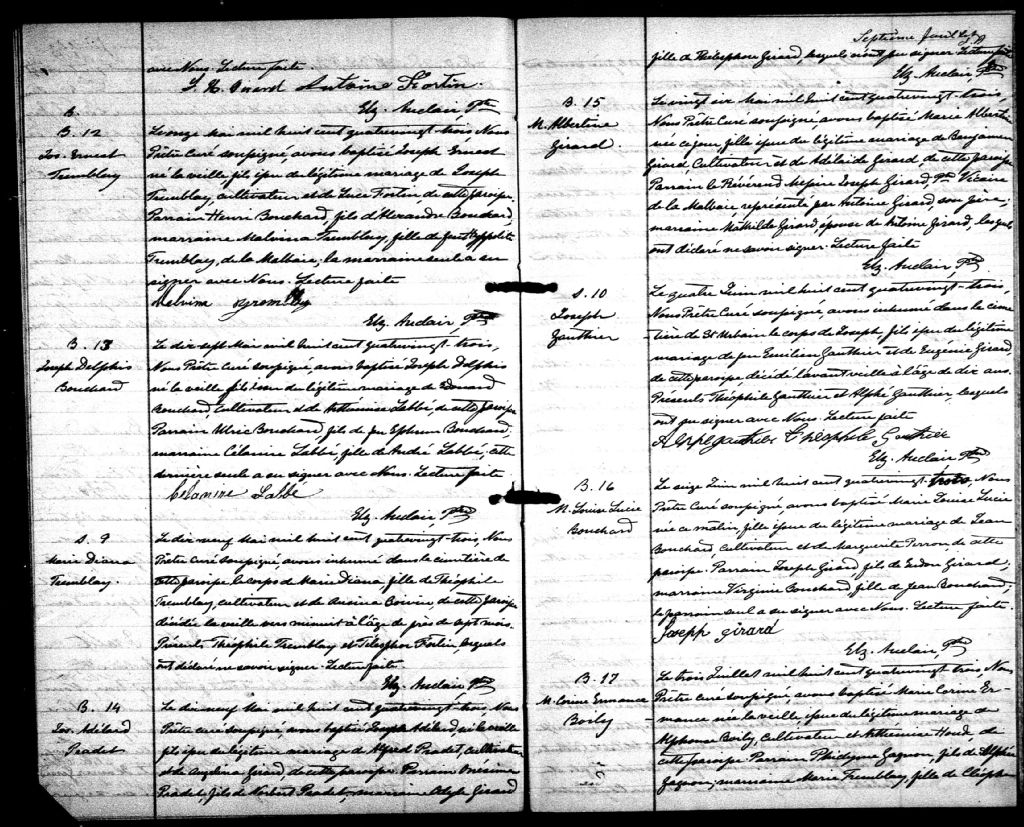 avec Nous. Lecture faite
Antoine Fortin.
Elz. Auclair, Ptre
B.
B. 12
Jos. Ernest
Tremblay
Le onze Mai mil huit cent quatrevingt-trois Nous
Prêtre Curé soussigné avons baptisé Joseph Ernest
né la veille, fils issu du légitime mariage de Joseph
Tremblay, cultivateur et de Luce Fortin de cette paroisse.
Parrain Henri Bouchard, fils d'Alexandre Bouchard
marraine Malvina Tremblay, fille de feu Hyppolite
Tremblay, de la Malbaie; la marraine seule a su
signer avec Nous. Lecture faite
Melvina Tremblay
Elz. Auclair, Ptre
B. 13
Joseph Delphis
Bouchard
Le dix sept Mai mil huit cent quatrevingt-trois,
Nous Prêtre Curé soussigné, avons baptisé Joseph Delphis
né la veille fils issu du légitime mariage de Edouard
Bouchard, Cultivateur et de Arthémise Labbé, de cette paroisse
Parrain Ulric Bouchard, fils de feu Ephrem Bouchard,
marraine Célanire Labbé, fille de André Labbé; cette
dernière seule a su signer avec Nous. Lecture faite
Celanire Labbé
Elz. Auclair, Ptre
S. 9
Marie Diana
Tremblay.
Le dix neuf Mai mil huit cent quatrevingt-trois, Nous
Prêtre Curé soussigné, avons inhumé dans le cimetière de
cette paroisse le corps de Marie Diana, fille de Théophile
Tremblay, cultivateur et de Boivin, de cette paroisse
décédée la veille vers minuit à l'âge de près de sept mois.
Présents Théophile Tremblay et Télesphor Fortin, lesquels
ont déclaré ne savoir signer. Lecture faite.
Elz. Auclair Ptre
B. 14
Jos. Adélard
Pradet
Le dix neuf Mai mil huit cent quatrevingt-trois, Nous
Prêtre Curé soussigné, avons baptisé Joseph Adélard, né la veille
fils issu de légitime mariage de Alfred Pradet, cultivateur
et de Girard, de cette paroisse. Parrain Onésime
Pradet, fils de Norbert Pradet, marraine Girard
Septième feuillet
fille de Télesphore Girard, lesquels n'ont pu signer. Lecture faite
Elz. Auclair, Ptre
B. 15
M. Albertine
Girard.
Le vingt six Mai mil huit cent quatrevingt-trois,
Nous Prêtre Curé soussigné, avons baptisé Marie Albertine
née ce jour, fille issue du légitime mariage de Benjamin
Girard, Cultivateur et de Adélaide Girard, de cette paroisse
Parrain le Révérend Messire Joseph Girard, Ptre Vicaire
de la Malbaie, représenté par Antoine Girard son père;
marraine Mathilde Girard épouse de Antoine Girard, lesquels
ont déclaré ne savoir signer. Lecture faite
Elz. Auclair Ptre
S. 10
Joseph
Gauthier
Le quatre Juin mil huit cent quatrevingt-trois,
Nous Prêtre Curé soussigné, avons inhumé dans le cime
tière de St Urbain le corps de Joseph, fils issu du légitime
mariage de feu Emilien Gauthier et de Eugénie Girard
de cette paroisse, décédé l'avant veille à l'âge de dix ans.
Présents Théophile Gauthier et Alphé Gauthier, lesquels
ont pu signer avec Nous. Lecture faite
Alphé gauthier Théophile Gauthier
Elz. Auclair Ptre
B. 16
M. Louise Lucie
Bouchard
Le seize Juin mil huit cent quatrevingt-trois, Nous
Prêtre Curé soussigné, avons baptisé Marie Louise Lucie
née ce matin, fille issue du légitime mariage de Jean
Bouchard, Cultivateur et de Marguerite Perron, de cette
paroisse. Parrain Joseph Girard, fils de Girard;
marraine Virginie Bouchard, fille de Jean Bouchard;
le parrain seul a su signer avec Nous. Lecture faite.
Joseph Girard
Elz. Auclair, Ptre
B. 17
M. Corine Ermance
Boily
Le trois Juillet mil huit cent quatrevingt-trois, Nous
Prêtre Curé soussigné, avons baptisé Marie Corine Er-
mance née la veille, issue du légitime mariage de
Alphonse Boily, Cultivateur et Arthémise Houd, de
cette paroisse Parrain Philippe Gagnon, fils de
Gagnon; marraine Marie Tremblay, fille de Cléophe